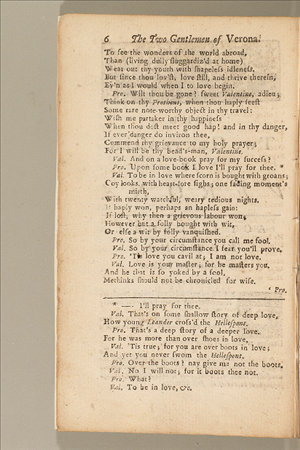 6 The Two Gentlemen of Verona.
To see the wonders of the world abroad,
Than (living dully sluggardiz'd at home)
Wear out thy youth with shapeless idleness.
But since thou lov'st, love still, and thrive therein,
Ev'n as I would when I to love begin.
Pro. Wilt thou be gone? sweet Valentine, adieu;
Think on thy Protheus, when thou haply seest
Some rare note-worthy object in thy travel:
Wish me partaker in thy happiness
When thou dost meet good hap; and in thy danger,
If ever danger do inviron thee,
Commend thy grievance to my holy prayer;
For I will be thy bead's-man, Valentine.
Val. And on a love-book pray for my success?
Pro. Upon some book I love I'll pray for thee. *
Val. To be in love where scorn is bought with groans;
Coy looks, with heart-sore sighs; one fading moment's
mirth,
With twenty watchful, weary tedious nights.
If haply won, perhaps an hapless gain:
If lost, why then a grievous labour won;
However but a folly bought with wit,
Or else a wit by folly vanquished.
Pro. So by your circumstance you call me fool.
Val. So by your circumstance I fear you'll prove.
Pro. 'Tis love you cavil at; I am not love.
Val. Love is your master; for he masters you.
And he that is so yoked by a fool,
Methinks should not be chronicled for wise.
Pro.
* —. I'll pray for thee.
Val. That's on some shallow story of deep love,
How young Leander cross'd the Hellespont.
Pro. That's a deep story of a deeper love.
For he was more than over shoes in love.
Val. 'Tis true; for you are over boots in love;
And yet you never swom the Hellespont.
Pro. Over the boots? nay give me not the boots.
Val. No I will not; for it boots thee not.
Pro. What?
Val. To be in love, &c.